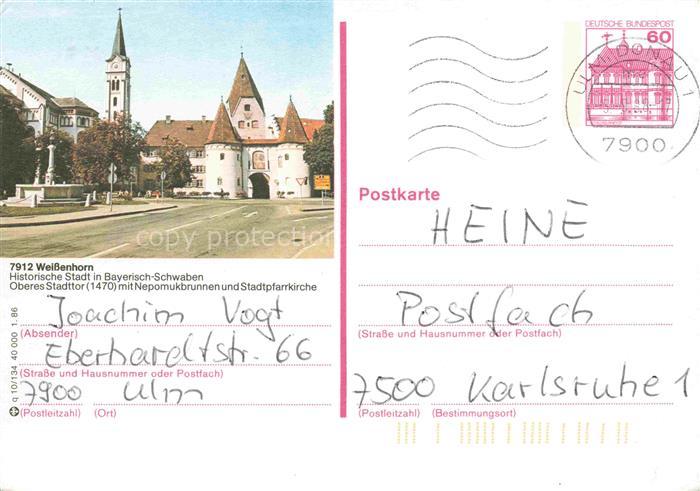 DEUTSCHE BUNDESPOST
60
ULM (DONAU) 1
7900
copy protection
Postkarte
HEINE
7912 Weißenhorn
Historische Stadt in Bayerisch-Schwaben
Oberes Stadttor (1470) mit Nepomukbrunnen und Stadtpfarrkirche
Joachim Vogt
(Absender)
Eberhardtstr. 66
(Straße und Hausnummer oder Postfach)
7900 Ulm
(Postleitzahl) (Ort)
Postfach
(Straße und Hausnummer oder Postfach)
7500 Karlsruhe 1
(Postleitzahl) (Bestimmungsort)
q 10/134 40 000 1.86